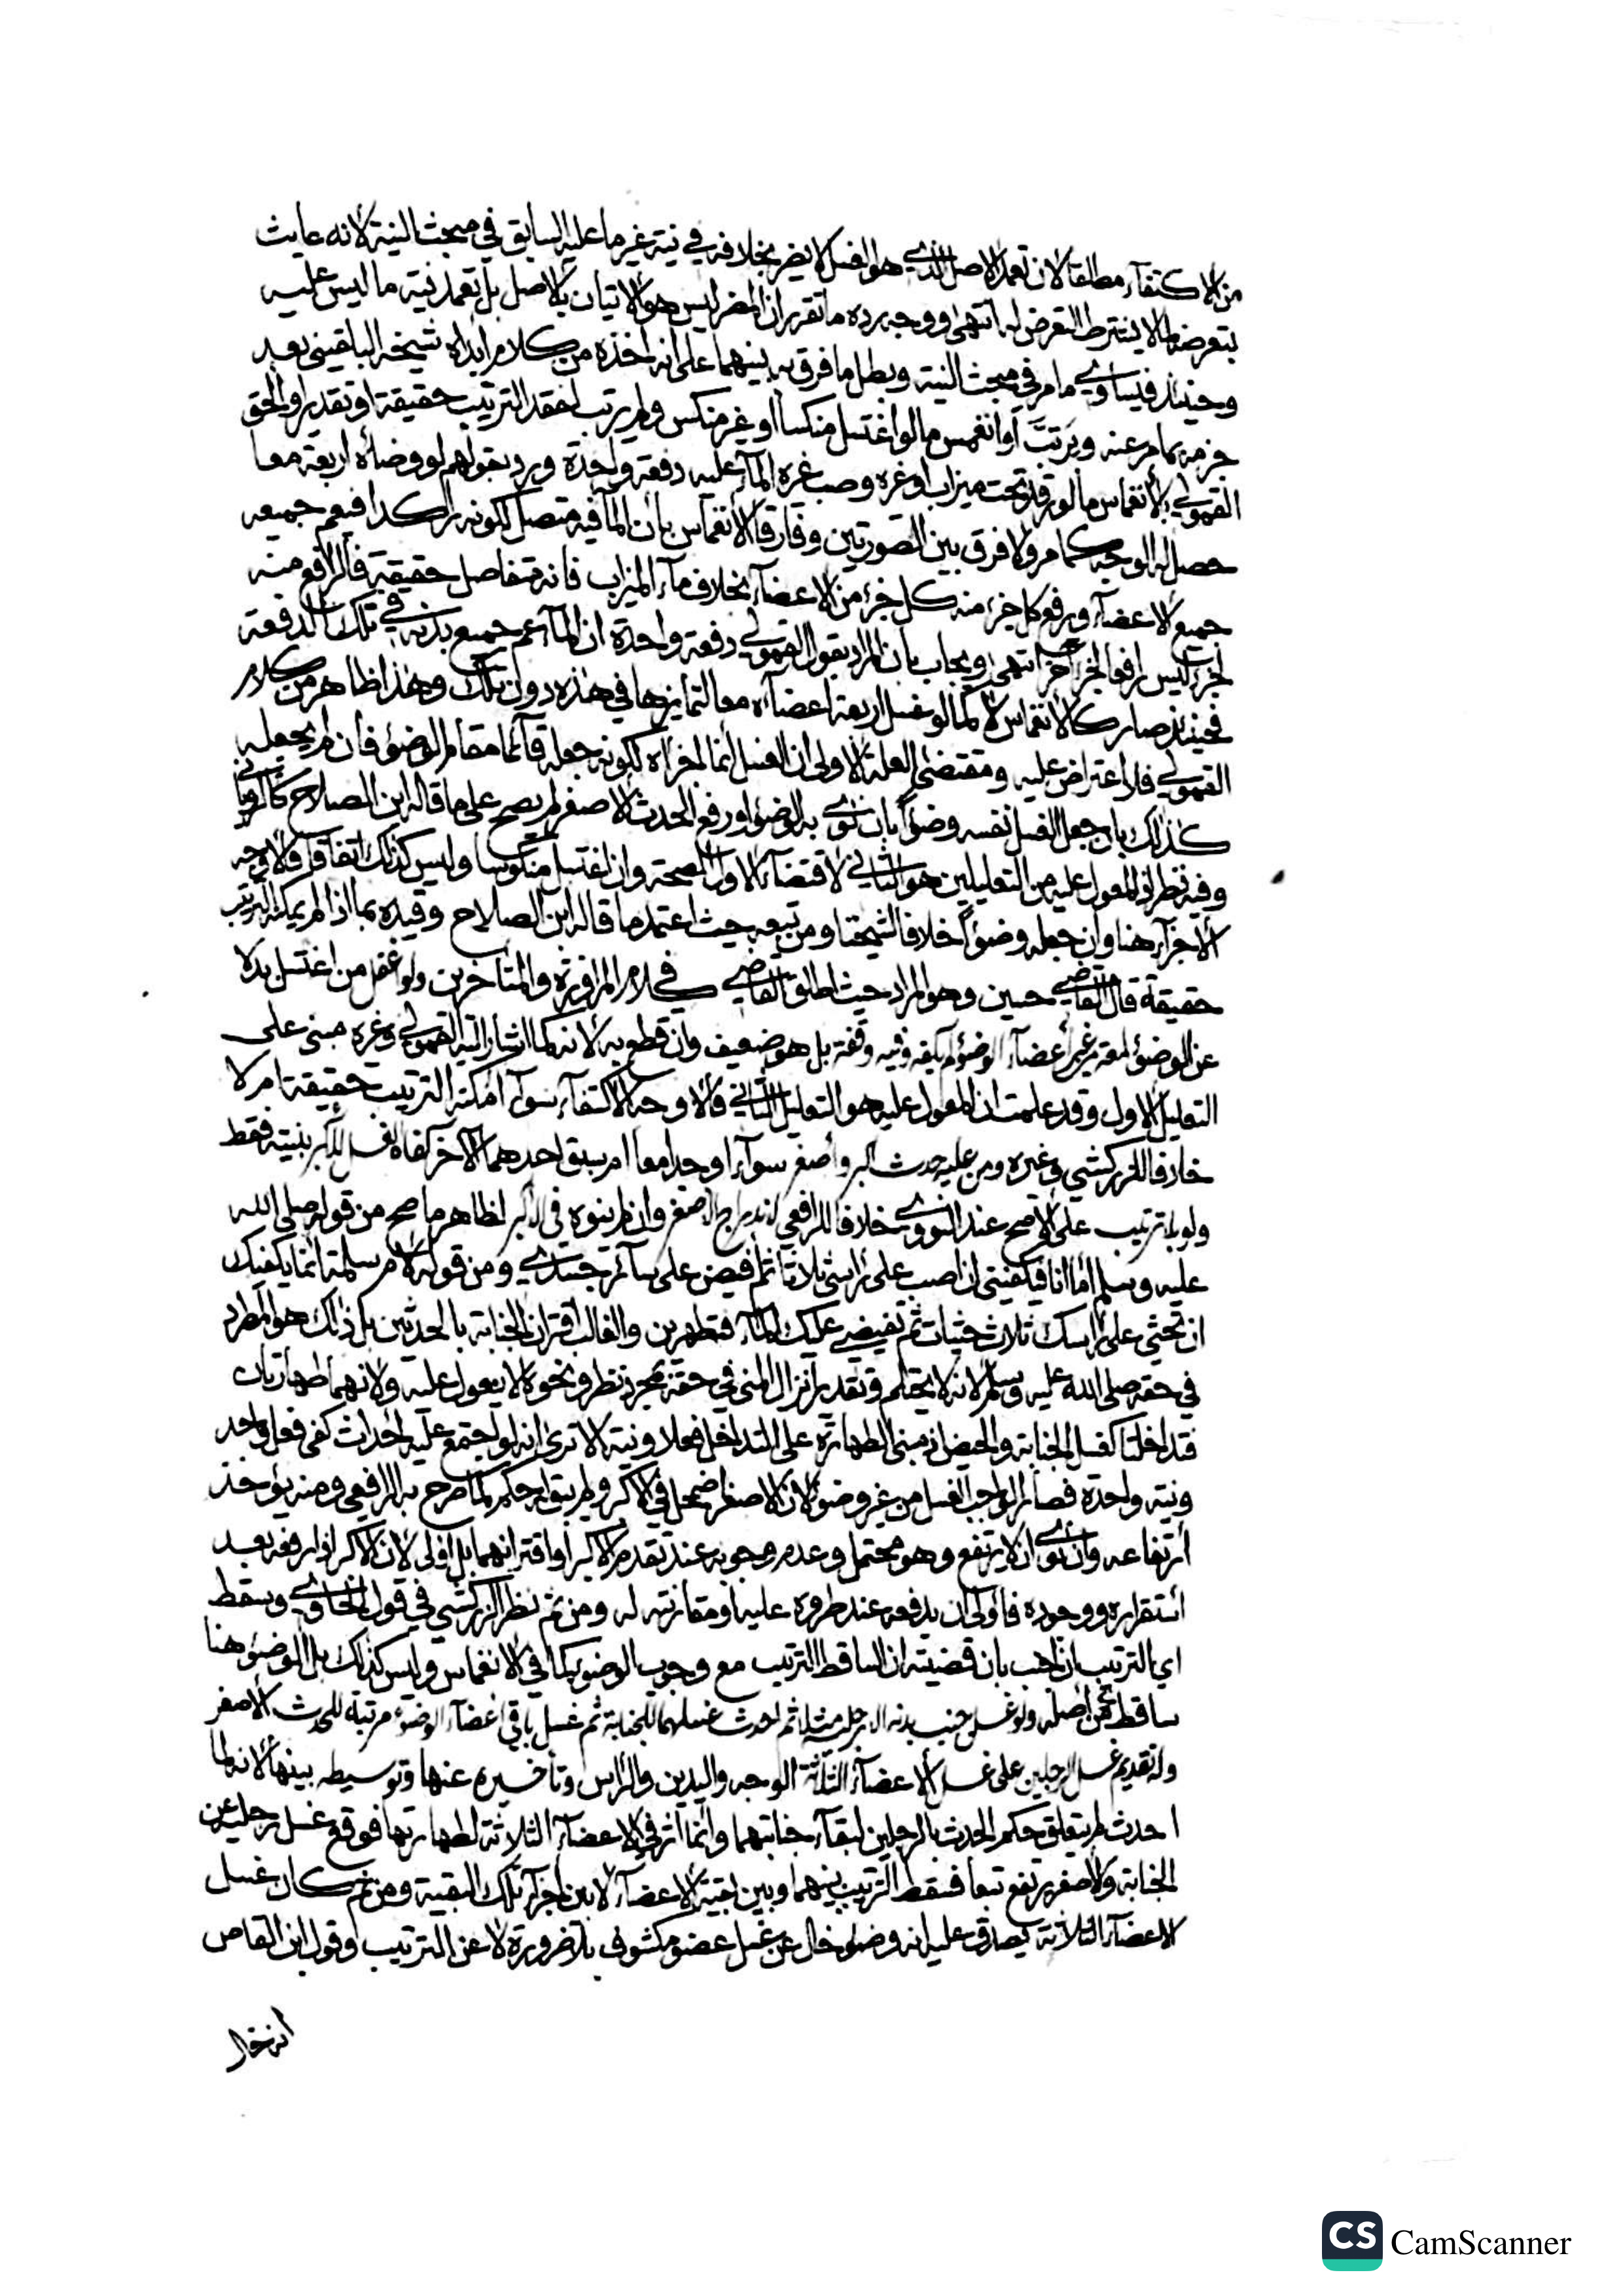 من الاكتفاء مطلقا لان تعمد الاصل الذي هو الغسل لا يضر بخلافه في نية غير ما عليه السابق في مبحث النية لانه عابث
بتعرضه لما لا يشترط التعرض له انتهى ووجه رده ما تقرر ان المضر ليس هو الاتيان بالاصل بل تعمد نية ما ليس عليه
وحينئذ فيساوي ما مر في مبحث النية وبطل ما فرق به بينهما على انه اخذه من كلام ابداه شيخه البلقيني بعد
جزمه بما مر عنه وبرتب او انغمس ما لو اغتسل منكسا او غير منكس ولم يرتب لفقد الترتيب حقيقة او تقديرا والحق
القمولي بالانغماس ما لو رقد تحت ميزاب او غيره وصب غيره الماء عليه دفعة واحدة ورد بقولهم لو وضأه اربعة معا
حصل له الوجه كما مر ولا فرق بين الصورتين وفارقا الانغماس بان الماء فيه متصل لكونه راكدا فيعم جميعه
جميع الاعضاء ويرفع كل جزء منه كل جزء من الاعضاء بخلاف ماء الميزاب فانه متفاصل حقيقة فالرافع منه
لجزء ليس رافعا لجزء آخر انتهى ويجاب بان المراد بقول القمولي دفعة واحدة ان الماء عم جميع بدنه في تلك الدفعة
فحينئذ صار كالانغماس لا كما لو غسل اربعة اعضاءه معا لتمايزها في هذه دون تلك وهذا ظاهر من كلام
القمولي فلا اعتراض عليه ومقتضى العلة الاولى ان الغسل انما اجزاه لكونه جعله قائما مقام الوضوء فان لم يجعله
كذلك بان جعل الغسل نفسه وضوءا بان نوى به الوضوء او رفع الحدث الاصغر لم يصح على ما قاله ابن الصلاح كالروياني
وفيه نظر اذ المعول عليه من التعليلين هو الثاني لاقتضاء الاول الصحة وان اغتسل منكوسا وليس كذلك اتفاقا فالاوجه
الاجزاء هنا وان جعله وضوءا خلافا لشيخنا ومن تبعه حيث اعتمد ما قاله ابن الصلاح وقيده بما اذا لم يمكنه الترتيب
حقيقة قال القاضي حسين وهو المراد حيث اطلق القاضي في كلام المراوزة والمتاخرين ولو اغفل من اغتسل بدلا
عن الوضوء لمعة من غير اعضاء الوضوء لم يكفه وفيه وقفة بل هو ضعيف وان قطع به لانه كما اشار اليه القمولي وغيره مبني على
التعليل الاول وقد علمت ان المعول عليه هو التعليل الثاني فالاوجه الاكتفاء سواء امكنه الترتيب حقيقة ام لا
خلافا للزركشي وغيره ومن عليه حدث اكبر واصغر سواء اوجدا معا ام سبق احدهما الآخر كفاه الغسل للاكبر بنيته فقط
ولو بلا ترتيب على الاصح عند النووي خلافا للرافعي لاندراج الاصغر وان لم ينوه في الاكبر لظاهر ما صح من قوله صلى الله
عليه وسلم اما انا فيكفيني ان اصب على راسي ثلاثا ثم افيض على سائر جسدي ومن قوله لام سلمة انما يكفيك
ان تحثي على راسك ثلاث حثيات ثم تفيضي عليك الماء فتطهرين والغالب اقتران الجنابة بالحدثين بل ذلك هو المطرد
في حقه صلى الله عليه وسلم لانه لا يحتلم وتقدير انزال المني في حقه بمجرد نظر ونحوه لا يعول عليه ولانهما طهارتان
فتداخلتا كغسل الجنابة والحيض اذ مبنى الطهارة على التداخل فعلا ونية الا ترى انه لو اجتمع عليه احداث كفى فعل واحد
ونية واحدة فصار الواجب الغسل من غير وضوء لان الاصغر اضمحل في الاكبر ولم يبق له حكم كما صرح به الرافعي ومنه يؤخذ
ارتفاعه وان نوى ان لا يرتفع وهو محتمل وعدم وجوبه عند تقدم الاكبر او اقترانهما بل اولى لان الاكبر اذا رفعه بعد
استقراره ووجوده فاولى ان يدفعه عند طروه عليه او مقارنته له ومن ثم نظر الزركشي في قول الحاوي وسقط
اي الترتيب ان اجنب بان قضيته ان الساقط الترتيب مع وجوب الوضوء كما في الانغماس وليس كذلك بل الوضوء هنا
ساقط من اصله ولو غسل جنب بدنه الا رجليه مثلا ثم احدث غسلهما للجنابة ثم غسل باقي اعضاء الوضوء مرتبة للحدث الاصغر
وله تقديم غسل الرجلين على غسل الاعضاء الثلاثة الوجه واليدين والراس وتأخيره عنها وتوسيطه بينها لانه لما
احدث لم يتعلق حكم الحدث بالرجلين لبقاء جنابتهما وانما اثر في الاعضاء الثلاثة لطهارتها فوقع غسل رجليه عن
الجنابة والاصغر يرتفع تبعا فسقط الترتيب بينهما وبين بقية الاعضاء لا بين اجزاء تلك البقية ومن ثم كان غسل
الاعضاء الثلاثة يصدق عليه انه وضوء خال عن غسل عضو مكشوف بلا ضرورة لا عن الترتيب وقول ابن القاص
انه خال
CS CamScanner